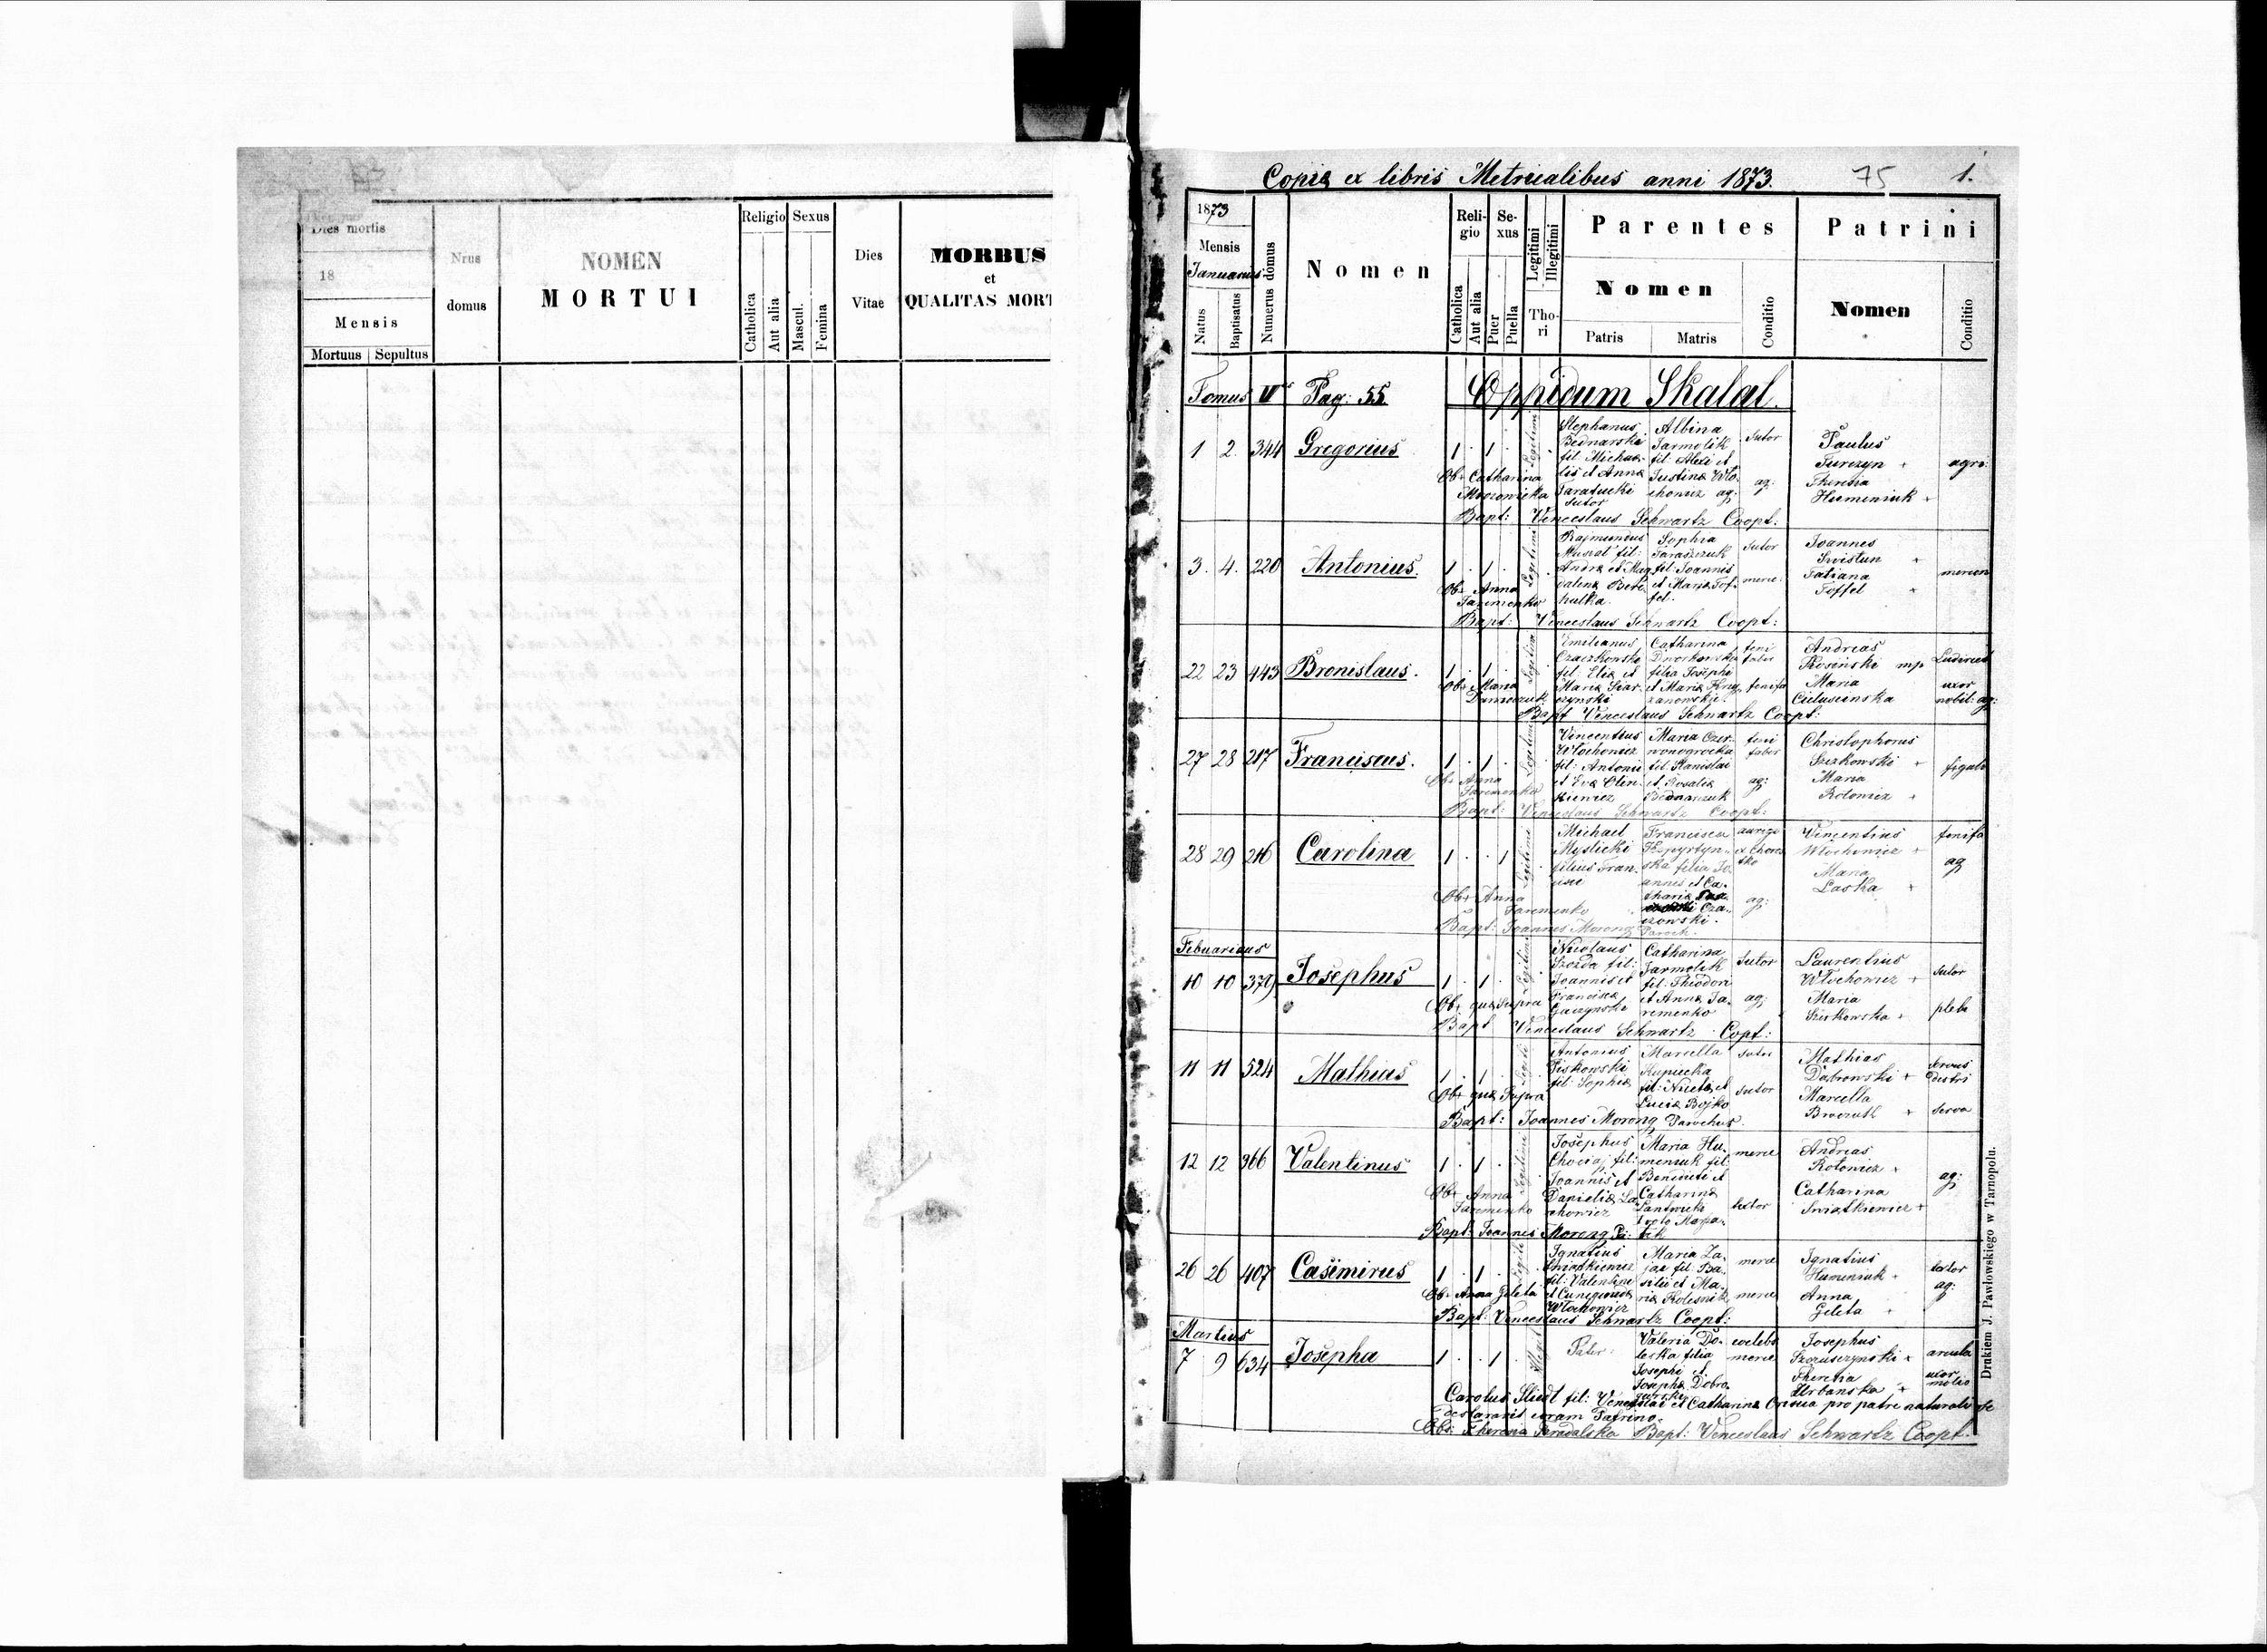 Dies mortis
18
Mensis
Mortuus Sepultus
Nrus
domus
NOMEN
MORTUI
Religio
Catholica
Aut alia
Sexus
Mascul.
Femina
Dies
Vitae
MORBUS
et
QUALITAS MORT
Copia ex libris Metricalibus anni 1873. 75 1.
1873
Mensis
Januarius
Natus
Baptisatus
Numerus domus
Nomen
Reli-
gio
Catholica
Aut alia
Se-
xus
Puer
Puella
Legitimi
Illegitimi
Tho-
ri
Parentes
Nomen
Patris
Matris
Conditio
Patrini
Nomen
Conditio
Tomus VI Pag: 55 Oppidum Skalat.
1 2. 344 Gregorius 1 1 Legitimi
Stephanus
Bednarski
fil: Michae-
lis et Anna
Taratucki
sutor
Albina
Jarmolik
fil: Alexi et
Justina Wło-
chowicz ag:
sutor
ag:
Paulus
Turczyn +
Theresia
Humeniuk +
agri:
Obs. Catharina
Bapt: Venceslaus Schwartz Coopt:
3. 4. 220 Antonius. 1 1 Legitimi
Rajmundus
Musiał fil:
Andrea et Mag
dalena
Sophia
Taraszczuk
fil: Joannis
et Maria Tof-
fel.
sutor
merc:
Joannes
Swistun +
Tatiana
Toffel +
mercen
Obs. Anna
Jaremenko
Bapt: Venceslaus Schwartz Coopt:
22 23 443 Bronislaus. 1 1 Legitimi
Emilianus
Czaczkowski
fil: Elia et
Maria
Catharina
filia Josephi
et Maria Krzy
zanowski.
feni
faber
fenifa
Andreas
Kosinski mp
Maria
uxor
nobil: ag:
Obs. Maria
Bapt Venceslaus Schwartz Coopt:
27 28 217 Franciscus. 1 1 Legitimi
Vincentius
Włochowicz
fil: Antonii
et Eva Olin-
kiewicz
Maria Czer-
wonogrocka
fil: Stanislai
et Rosalia
Bednarczuk
feni
faber
ag:
Christophorus
Szczkowski +
Maria
Rotowicz +
figuli
Obs. Anna
Jaremenko
Bapt: Venceslaus Schwartz Coopt:
28 29 216 Carolina 1 1 Legitimi
Michael
Myslicki
filius Fran-
cisci
Francisca
Kopyrtyn-
ska filia Jo-
annis et Ca-
tharina
auriga
ag:
Vincentius
Włochowicz +
Maria
Laska +
fenifa
ag
Obs. Anna
Jaremenko
Bapt: Joannes Morong Paroch.
Febuarius
10 10 379 Josephus 1 1 Legitimi
Nicolaus
fil:
Joannis et
Francisca
Catharina
Jarmolik
fil: Theodori
et Anna Ja-
remenko
sutor
ag:
Laurentius
Włochowicz +
Maria
Szczkowska +
sutor
pleb
Obs. qua supra
Bapt Venceslaus Schwartz Copt:
11 11 524 Mathias 1 1 Legiti
Antonius
Piskowski
fil: Sophia
Marcella
Kupiecka
fil: Niceta et
Lucia Bojko
sutor
sutor
Mathias
Dabrowski +
Marcella
servus
serva
Obs. qua supra
Bapt: Joannes Morong Parochus.
12 12 366 Valentinus 1 1 Legitimi
Josephus
Chociaj fil:
Joannis et
Maria Hu-
meniuk fil:
Benedicti et
Catharina
merce
textor
Andreas
Rotowicz +
Catharina
Swiatkiewicz +
ag:
Obs. Anna
Jaremenko
Bapt: Joannes Morong
26 26 407 Casimirus 1 1 Legiti
Ignatius
Swiatkiewicz
fil: Valentini
et Cunegunda
Włochowicz
Maria Za-
jac fil: Ba-
silii et Ma-
ria Kolesnik
merce
merce
Ignatius
Humeniuk +
Anna
Geleta +
textor
ag:
Obs. Anna Geleta
Bapt: Venceslaus Schwartz Coopt:
Martius
7 9 634 Josepha 1 1 Illegit
Pater:
Valeria Do-
leska filia
Josephi et
Josepha Dobro-
coelebs
merce
Josephus
Theresia
Urbanska +
uxor
Carolus fil: Venceslai et Catharina pro patre naturali se
declaravit coram Patrino.
Obs: Theresia Bapt: Venceslaus Schwartz Coopt.
Drukiem J. Pawłowskiego w Tarnopolu.